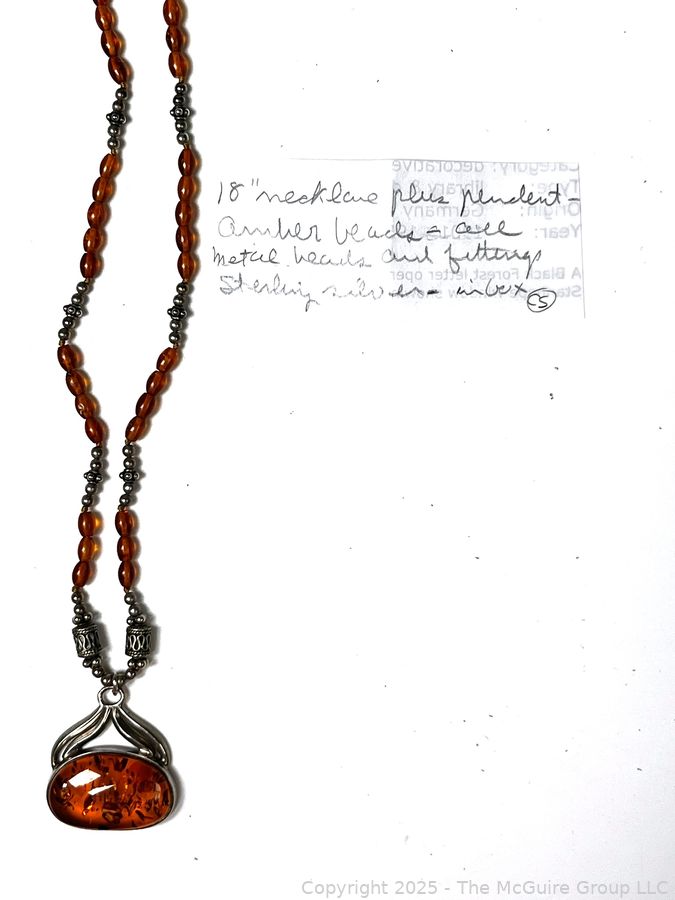 18" necklace plus pendent -
Amber beads = all
metal beads and fittings
Sterling silver - in box C5
Category: decorative
Type: library &
Origin: Germany
Year:
A Black Forest letter oper
Copyright 2025 - The McGuire Group LLC